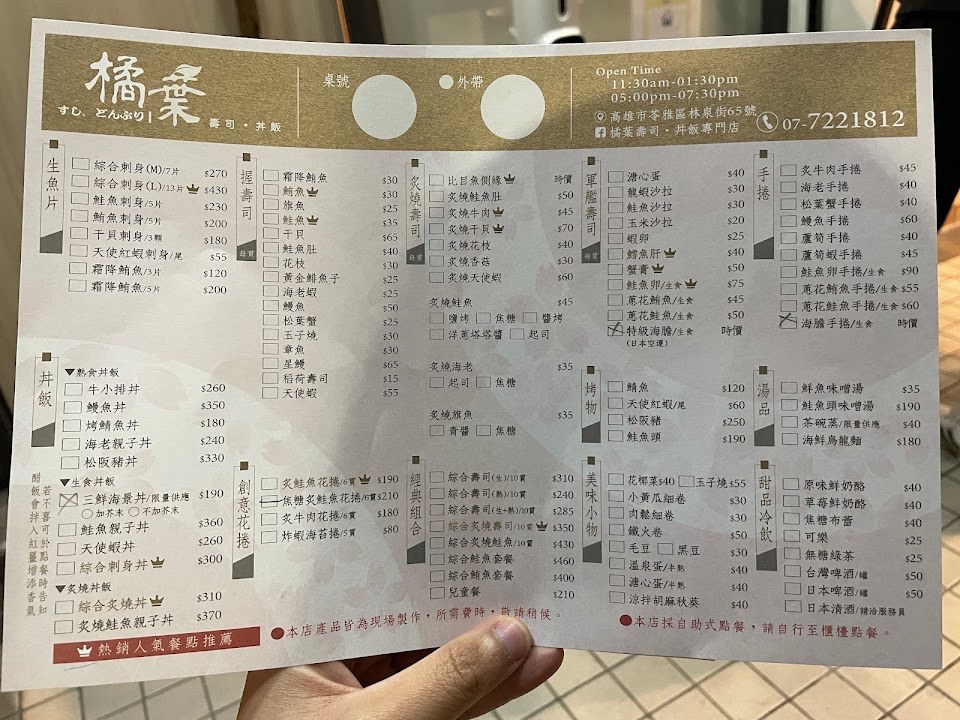 橘葉
すし、どんぶり
壽司・丼飯
桌號
外帶
Open Time
11:30am-01:30pm
05:00pm-07:30pm
高雄市苓雅區林泉街65號
橘葉壽司・丼飯專門店
07-7221812
生魚片
綜合刺身(M)/7片 $270
綜合刺身(L)/13片 $430
鮭魚刺身/5片 $230
鮪魚刺身/5片 $200
干貝刺身/3顆 $180
天使紅蝦刺身/尾 $55
霜降鮪魚/3片 $120
霜降鮪魚/5片 $200
握壽司
每貫
霜降鮪魚 $30
鮪魚 $30
旗魚 $25
鮭魚 $30
干貝 $65
鮭魚肚 $40
花枝 $30
黃金鯡魚子 $25
海老蝦 $25
鰻魚 $50
松葉蟹 $25
玉子燒 $30
章魚 $30
星鰻 $65
稻荷壽司 $15
天使蝦 $55
炙燒壽司
每貫
比目魚側緣 時價
炙燒鮭魚肚 $50
炙燒牛肉 $45
炙燒干貝 $70
炙燒花枝 $40
炙燒香菇 $30
炙燒天使蝦 $60
炙燒鮭魚 $45
鹽烤 焦糖 醬烤
洋蔥塔塔醬 起司
炙燒海老 $35
起司 焦糖
炙燒旗魚 $35
青醬 焦糖
軍艦壽司
每貫
溏心蛋 $40
龍蝦沙拉 $30
鮭魚沙拉 $30
玉米沙拉 $20
蝦卵 $25
鱈魚肝 $40
蟹膏 $50
鮭魚卵/生食 $75
蔥花鮪魚/生食 $45
蔥花鮭魚/生食 $50
特級海膽/生食 時價
(日本空運)
手捲
炙牛肉手捲 $45
海老手捲 $40
松葉蟹手捲 $40
鰻魚手捲 $60
蘆筍手捲 $40
蘆筍蝦手捲 $45
鮭魚卵手捲/生食 $90
蔥花鮪魚手捲/生食 $55
蔥花鮭魚手捲/生食 $60
海膽手捲/生食 時價
丼飯
▼熟食丼飯
牛小排丼 $260
鰻魚丼 $350
烤鯖魚丼 $180
海老親子丼 $240
松阪豬丼 $330
▼生食丼飯
三鮮海景丼/限量供應 $190
加芥末 不加芥末
鮭魚親子丼 $360
天使蝦丼 $260
綜合刺身丼 $300
▼炙燒丼飯
綜合炙燒丼 $310
炙燒鮭魚親子丼 $370
醋飯會拌入紅薑增添香氣
若不喜可於點餐時告知
熱銷人氣餐點推薦
創意花捲
炙鮭魚花捲/6貫 $190
焦糖炙鮭魚花捲/6貫 $210
炙牛肉花捲/6貫 $180
炸蝦海苔捲/5貫 $80
經典組合
綜合壽司(生)/10貫 $310
綜合壽司(熟)/10貫 $240
綜合壽司(生+熟)/10貫 $285
綜合炙燒壽司/10貫 $350
綜合炙燒鮭魚/10貫 $430
綜合鮭魚套餐 $460
綜合鮪魚套餐 $400
兒童餐 $210
烤物
鯖魚 $120
天使紅蝦/尾 $60
松阪豬 $250
鮭魚頭 $190
湯品
鮮魚味噌湯 $35
鮭魚頭味噌湯 $190
茶碗蒸/限量供應 $40
海鮮烏龍麵 $180
美味小物
花椰菜 $40 玉子燒 $55
小黃瓜細卷 $30
肉鬆細卷 $30
鐵火卷 $50
毛豆 黑豆 $30
溫泉蛋/半熟 $40
溏心蛋/半熟 $40
涼拌胡麻秋葵 $40
甜品冷飲
原味鮮奶酪 $40
草莓鮮奶酪 $40
焦糖布蕾 $40
可樂 $25
無糖綠茶 $25
台灣啤酒/罐 $50
日本啤酒/罐 $50
日本清酒/請洽服務員
●本店產品皆為現場製作，所需費時，敬請稍候。
●本店採自助式點餐，請自行至櫃檯點餐。